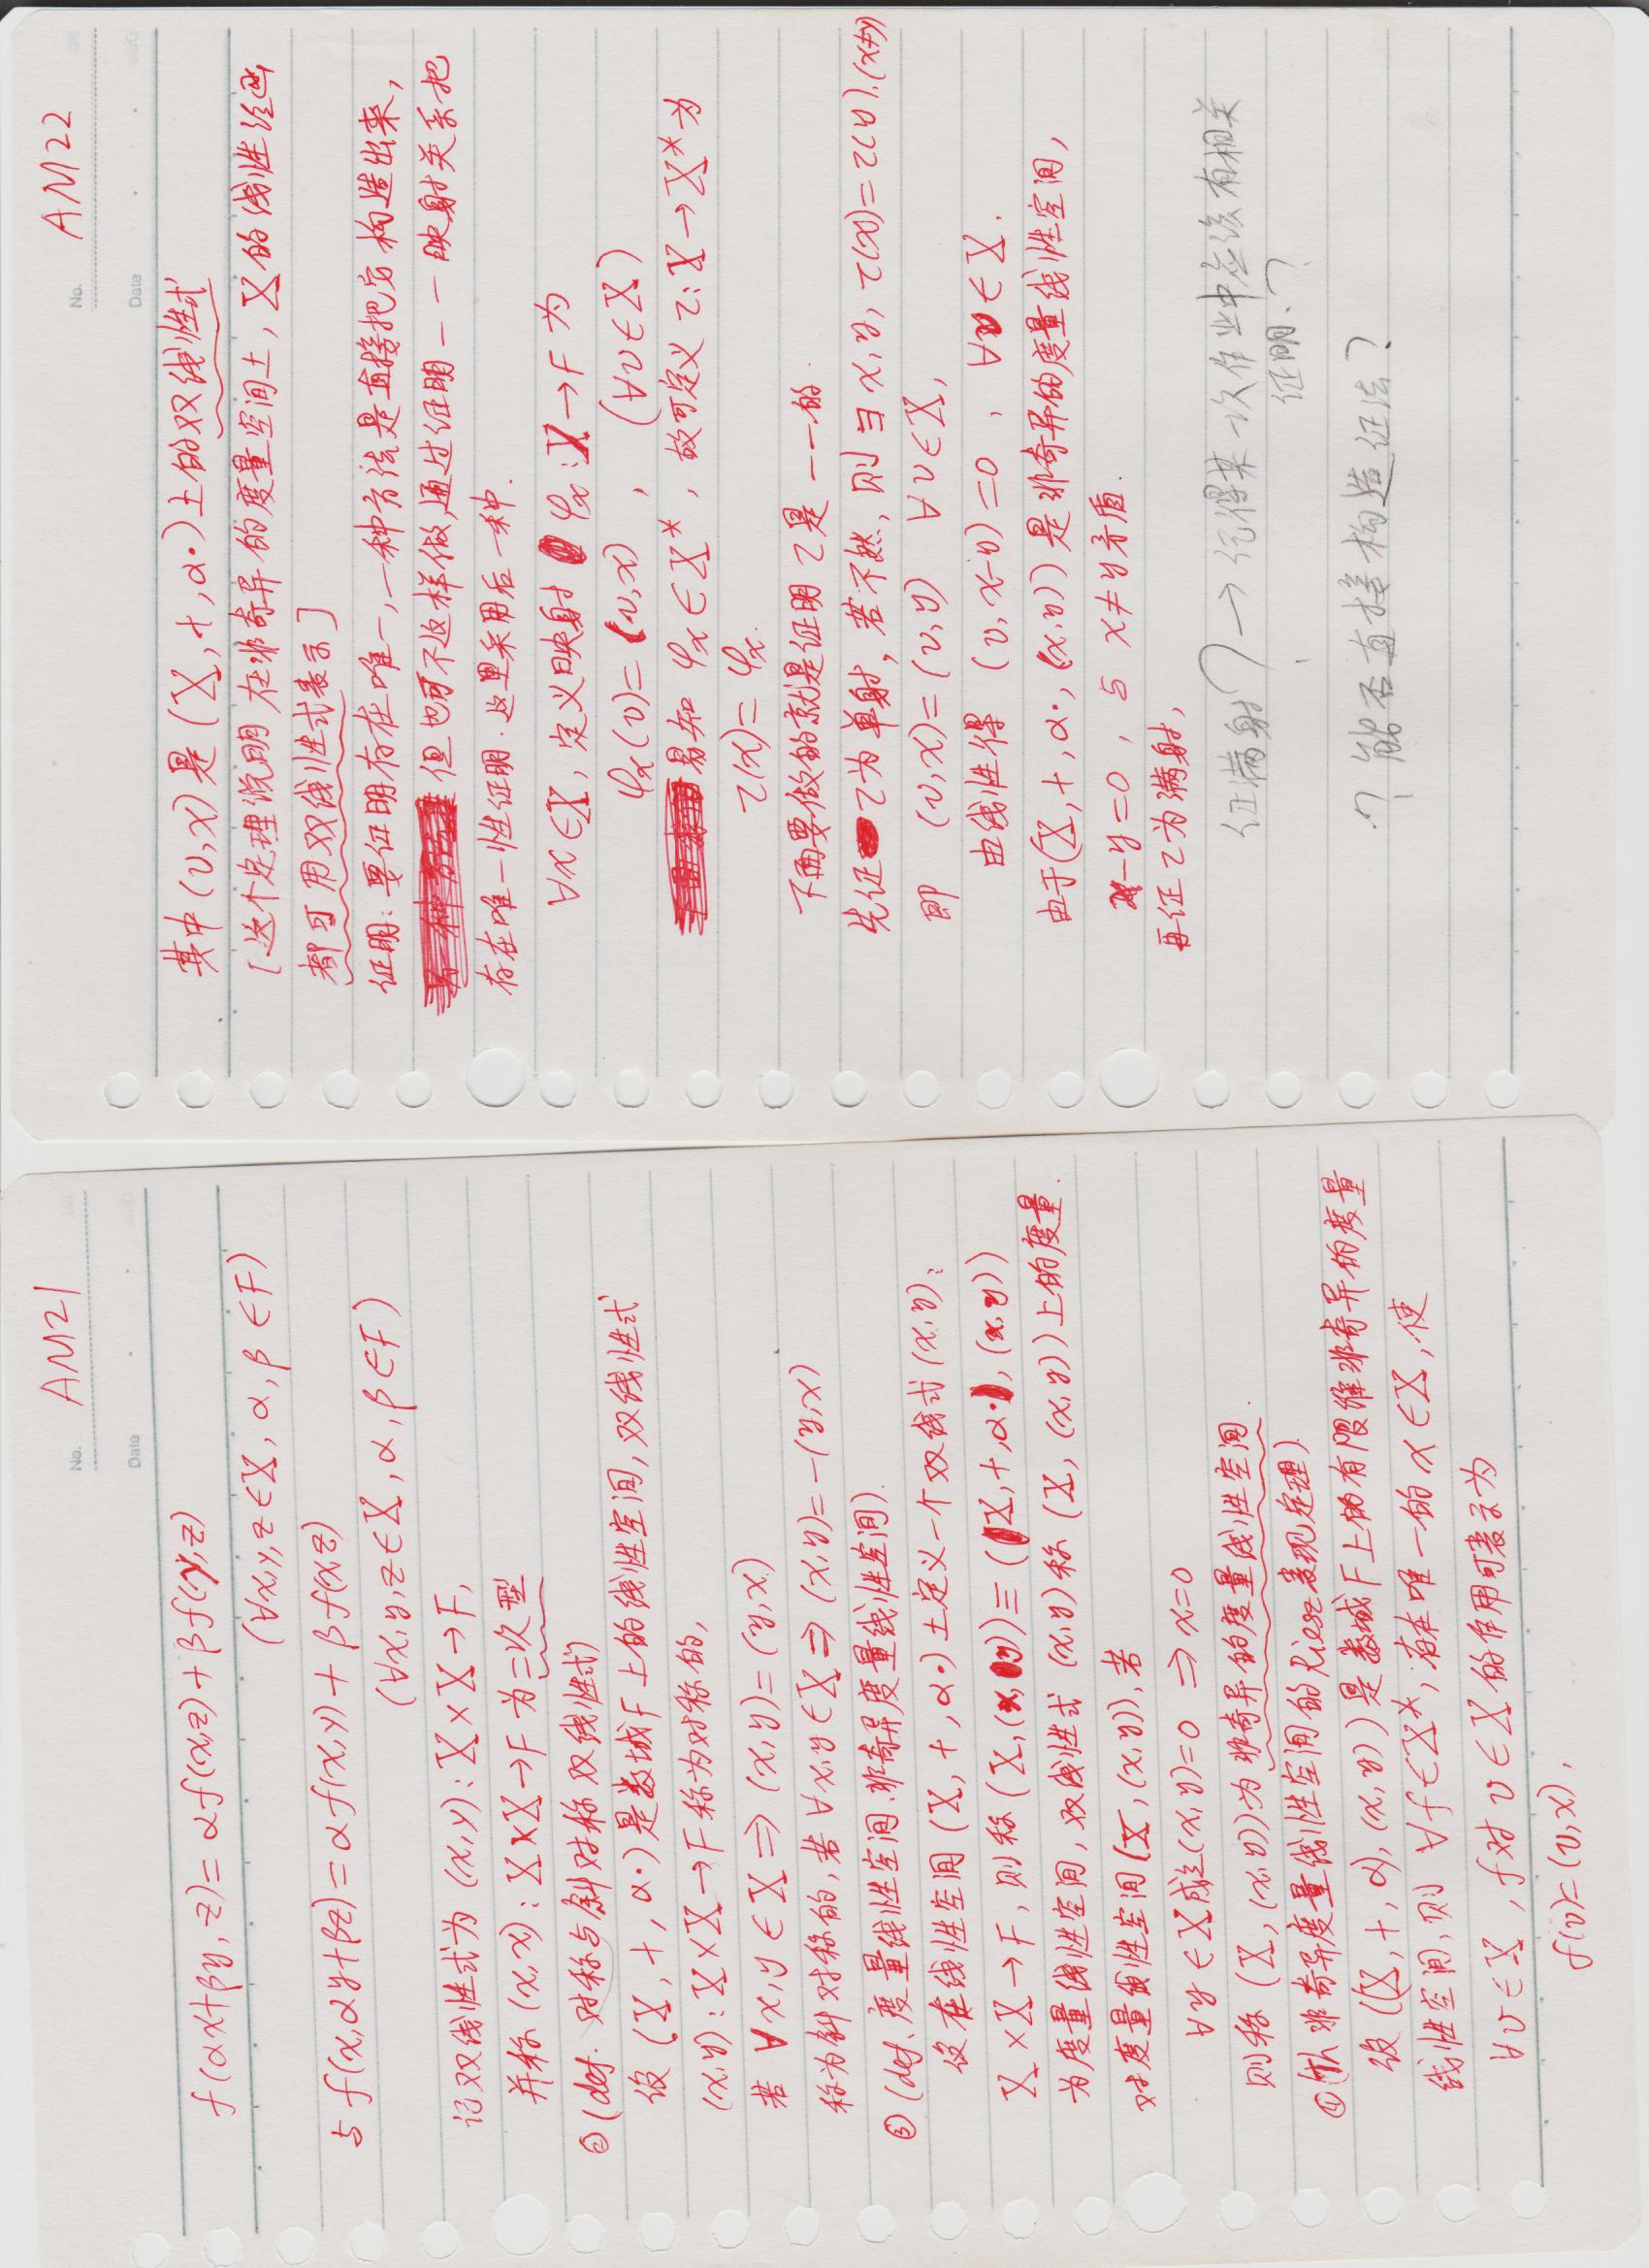 No. AM21
Date
f(αx+βy, z)= αf(x,z)+βf(y,z)
(∀x,y,z∈X, α,β∈F)
与 f(x,αy+βz)=αf(x,y)+βf(xz)
(∀x,y,z∈X, α,β∈F)
记双线性式为 (x,y): X×X→F,
并称 (x,x): X×X→F 为二次型
② (def. 对称与斜对称双线性式)
设 (X, +, α·) 是数域F上的线性空间, 双线性式
(x,y): X×X→F 称为对称的,
若 ∀x,y∈X ⇒ (x,y)=(y,x)
称为斜对称的, 若 ∀x,y∈X ⇒ (x,y)=-(y,x)
③ (def. 度量线性空间、非奇异度量线性空间).
设在线性空间 (X, +, α·) 上定义一个双线式 (x,y):
X×X→F, 则称 (X,(x,y))≡(X,+,α·, (x,y))
为度量线性空间, 双线性式 (x,y) 称 (X, (x,y)) 上的度量.
对度量线性空间 (X, (x,y)), 若
∀y∈X成立(x,y)=0 ⇒ x=0
则称 (X, (x,y)) 为非奇异的度量线性空间.
④ (th 非奇异度量线性空间的Riesz表现定理)
设 ((X, +, α), (x,y)) 是数域F上的有限维非奇异的度量
线性空间, 则 ∀f∈X*, 存在唯一的 x∈X, 使
∀v∈X, f对 v∈X 的作用可表示为
f(v)=(v,x),
No. AM22
Date
其中 (v,x) 是 (X, +, α·) 上的双线性式
[这个定理说明在非奇异的度量空间上, X的线性泛函
都可用双线性式表示]
证明: 要证明存在唯一, 一种方法是直接把它构造出来,
但也可不这样做, 通过证明一一映射关系把
存在唯一性证明. 这里采用后一种.
∀x∈X, 定义映射 φx: X→F 为
φx(v)=(v,x), (∀v∈X)
易知 φx∈X*, 故可定义 τ: X→X* 为
τ(x)= φx.
下面要做的就是证明 τ是一一的.
先证 τ为单射, 若不然, 则∃x,y, τ(x)=τ(y), (x≠y)
即 (v,x)=(v,y) ∀v∈X,
由线性得 (v, x-y)=0, ∀v∈X.
由于(X, +, α·, (x,y)) 是非奇异的度量线性空间,
x-y=0, 与 x≠y矛盾.
再证 τ为满射,
证满射? → 记得某一次作业中应该有相关
证明.?
? 能否直接构造证法?